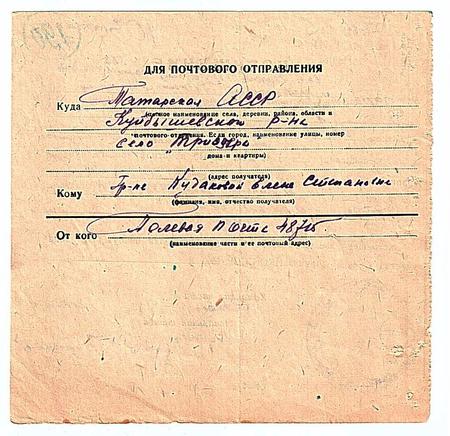 ДЛЯ ПОЧТОВОГО ОТПРАВЛЕНИЯ
Куда Татарская АССР
(полное наименование села, деревни, района, области и
Куйбышевский р-на
почтового отделения. Если город, наименование улицы, номер
село
дома и квартиры)
(адрес получателя)
Кому Гр-ке Кудаковой Елена Степановне
(фамилия, имя, отчество получателя)
От кого Полевая почта
(наименование части и ее почтовый адрес)